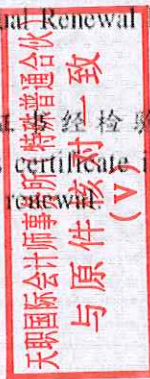 Renewal
经检验
certificate i
renewal
天职国际会计师事务所（特殊普通合伙）
与原件核对一致
（V）